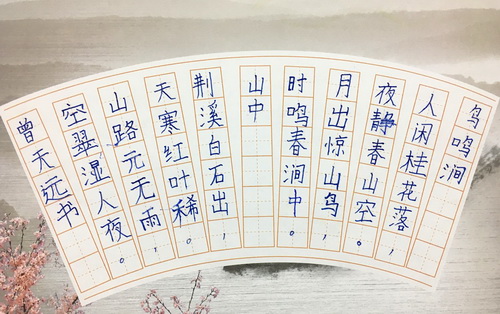 鸟鸣涧
人闲桂花落，
夜静春山空。
月出惊山鸟，
时鸣春涧中。
山中
荆溪白石出，
天寒红叶稀。
山路元无雨，
空翠湿人夜。
曾天远书